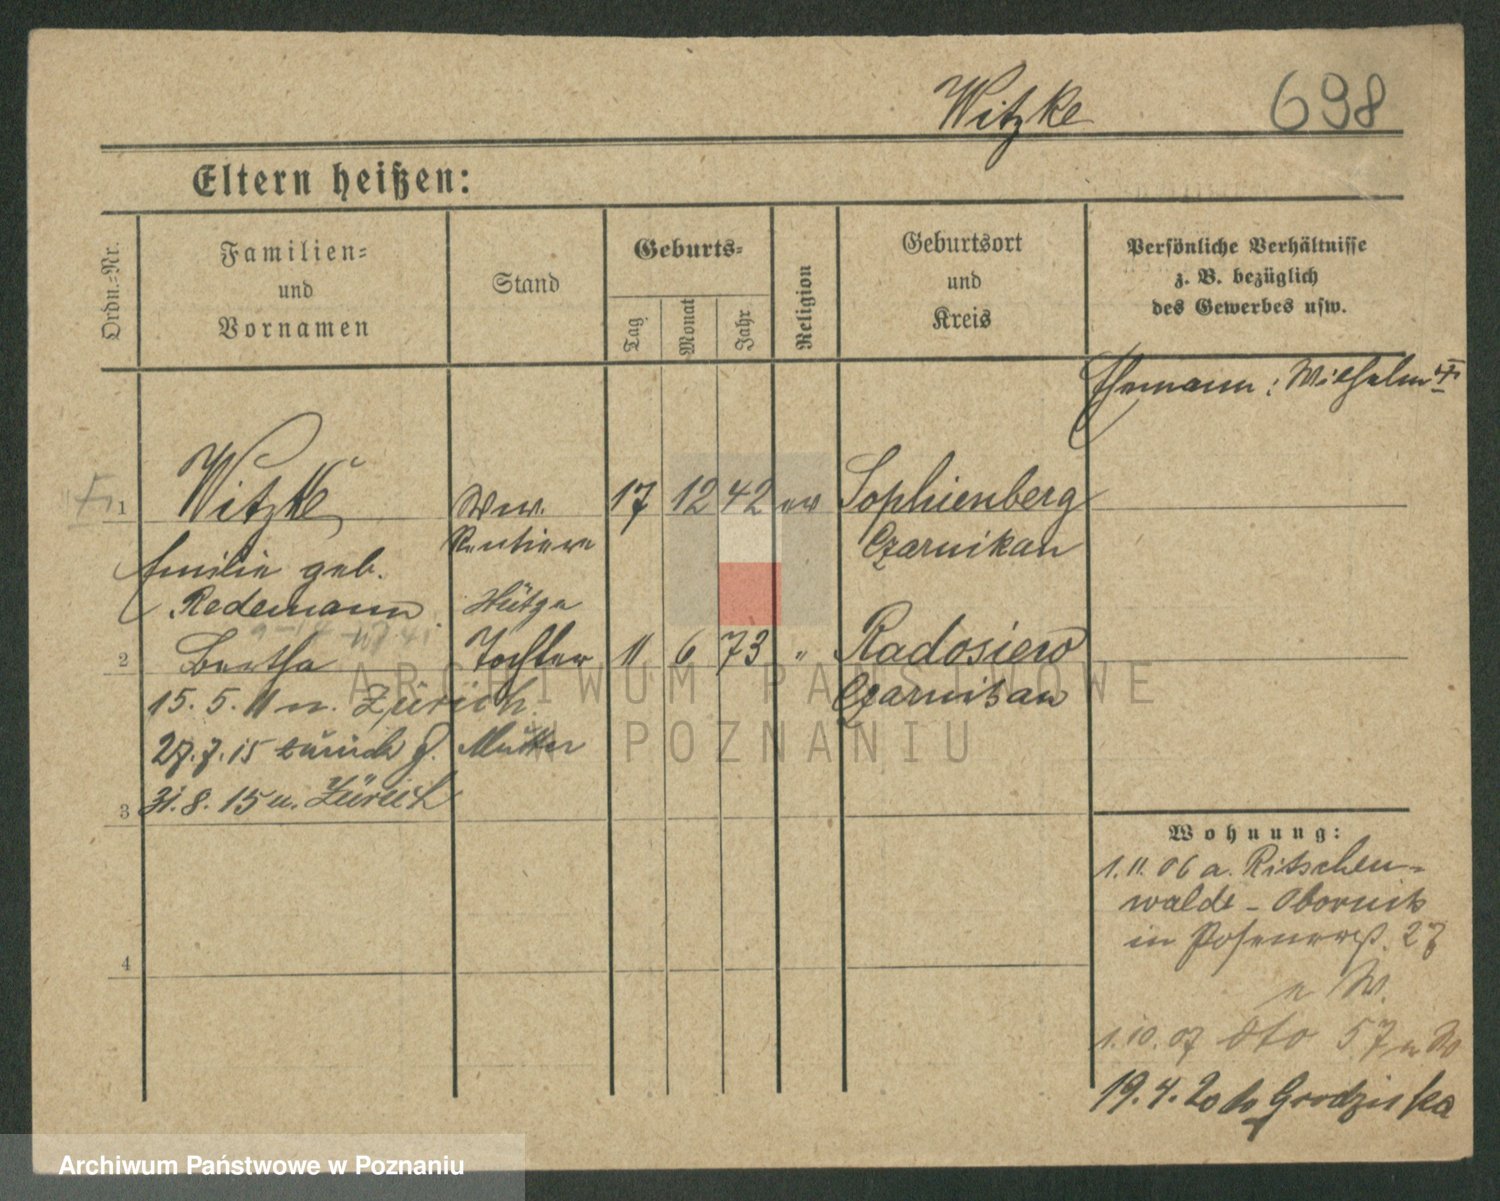 Witzke 698
Eltern heißen:
Ordn.-Nr.
Familien-
und
Vornamen
Stand
Geburts-
Tag
Monat
Jahr
Religion
Geburtsort
und
Kreis
Persönliche Verhältnisse
z. B. bezüglich
des Gewerbes usw.
Ehemann: Wilhelm †
1 Witzke Wwe. 17 12 42 ev Sophienberg
Rentiere Czarnikau
Emilie geb.
Redemann
2 Bertha Tochter 11 6 73 " Radosiew
15. 5. 11 n. Zürich Czarnikau
27. 7. 15 Zürich z. Mutter
3 31. 8. 15 n. Zürich
4
Wohnung:
1. 11. 06 a. Ritschen-
walde - Obornik
in Posenerst. 27
W.
1. 10. 07 dto 57
19. 4. 20 Grodziska
ARCHIWUM PAŃSTWOWE
W POZNANIU
Archiwum Państwowe w Poznaniu